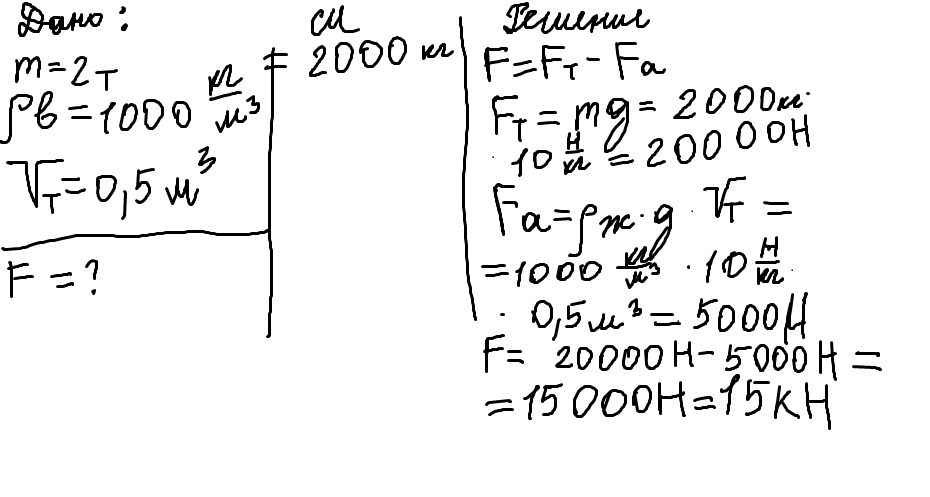 Дано:
m=2т
ρв=1000 кг/м³
Vт=0,5 м³
F=?
СИ
= 2000 кг
Решение
F=Fт-Fа
Fт=mg=2000кг·
·10 Н/кг=20000Н
Fа=ρж·g·Vт=
=1000 кг/м³·10 Н/кг·
·0,5м³=5000Н
F= 20000Н-5000Н=
=15000Н=15кН